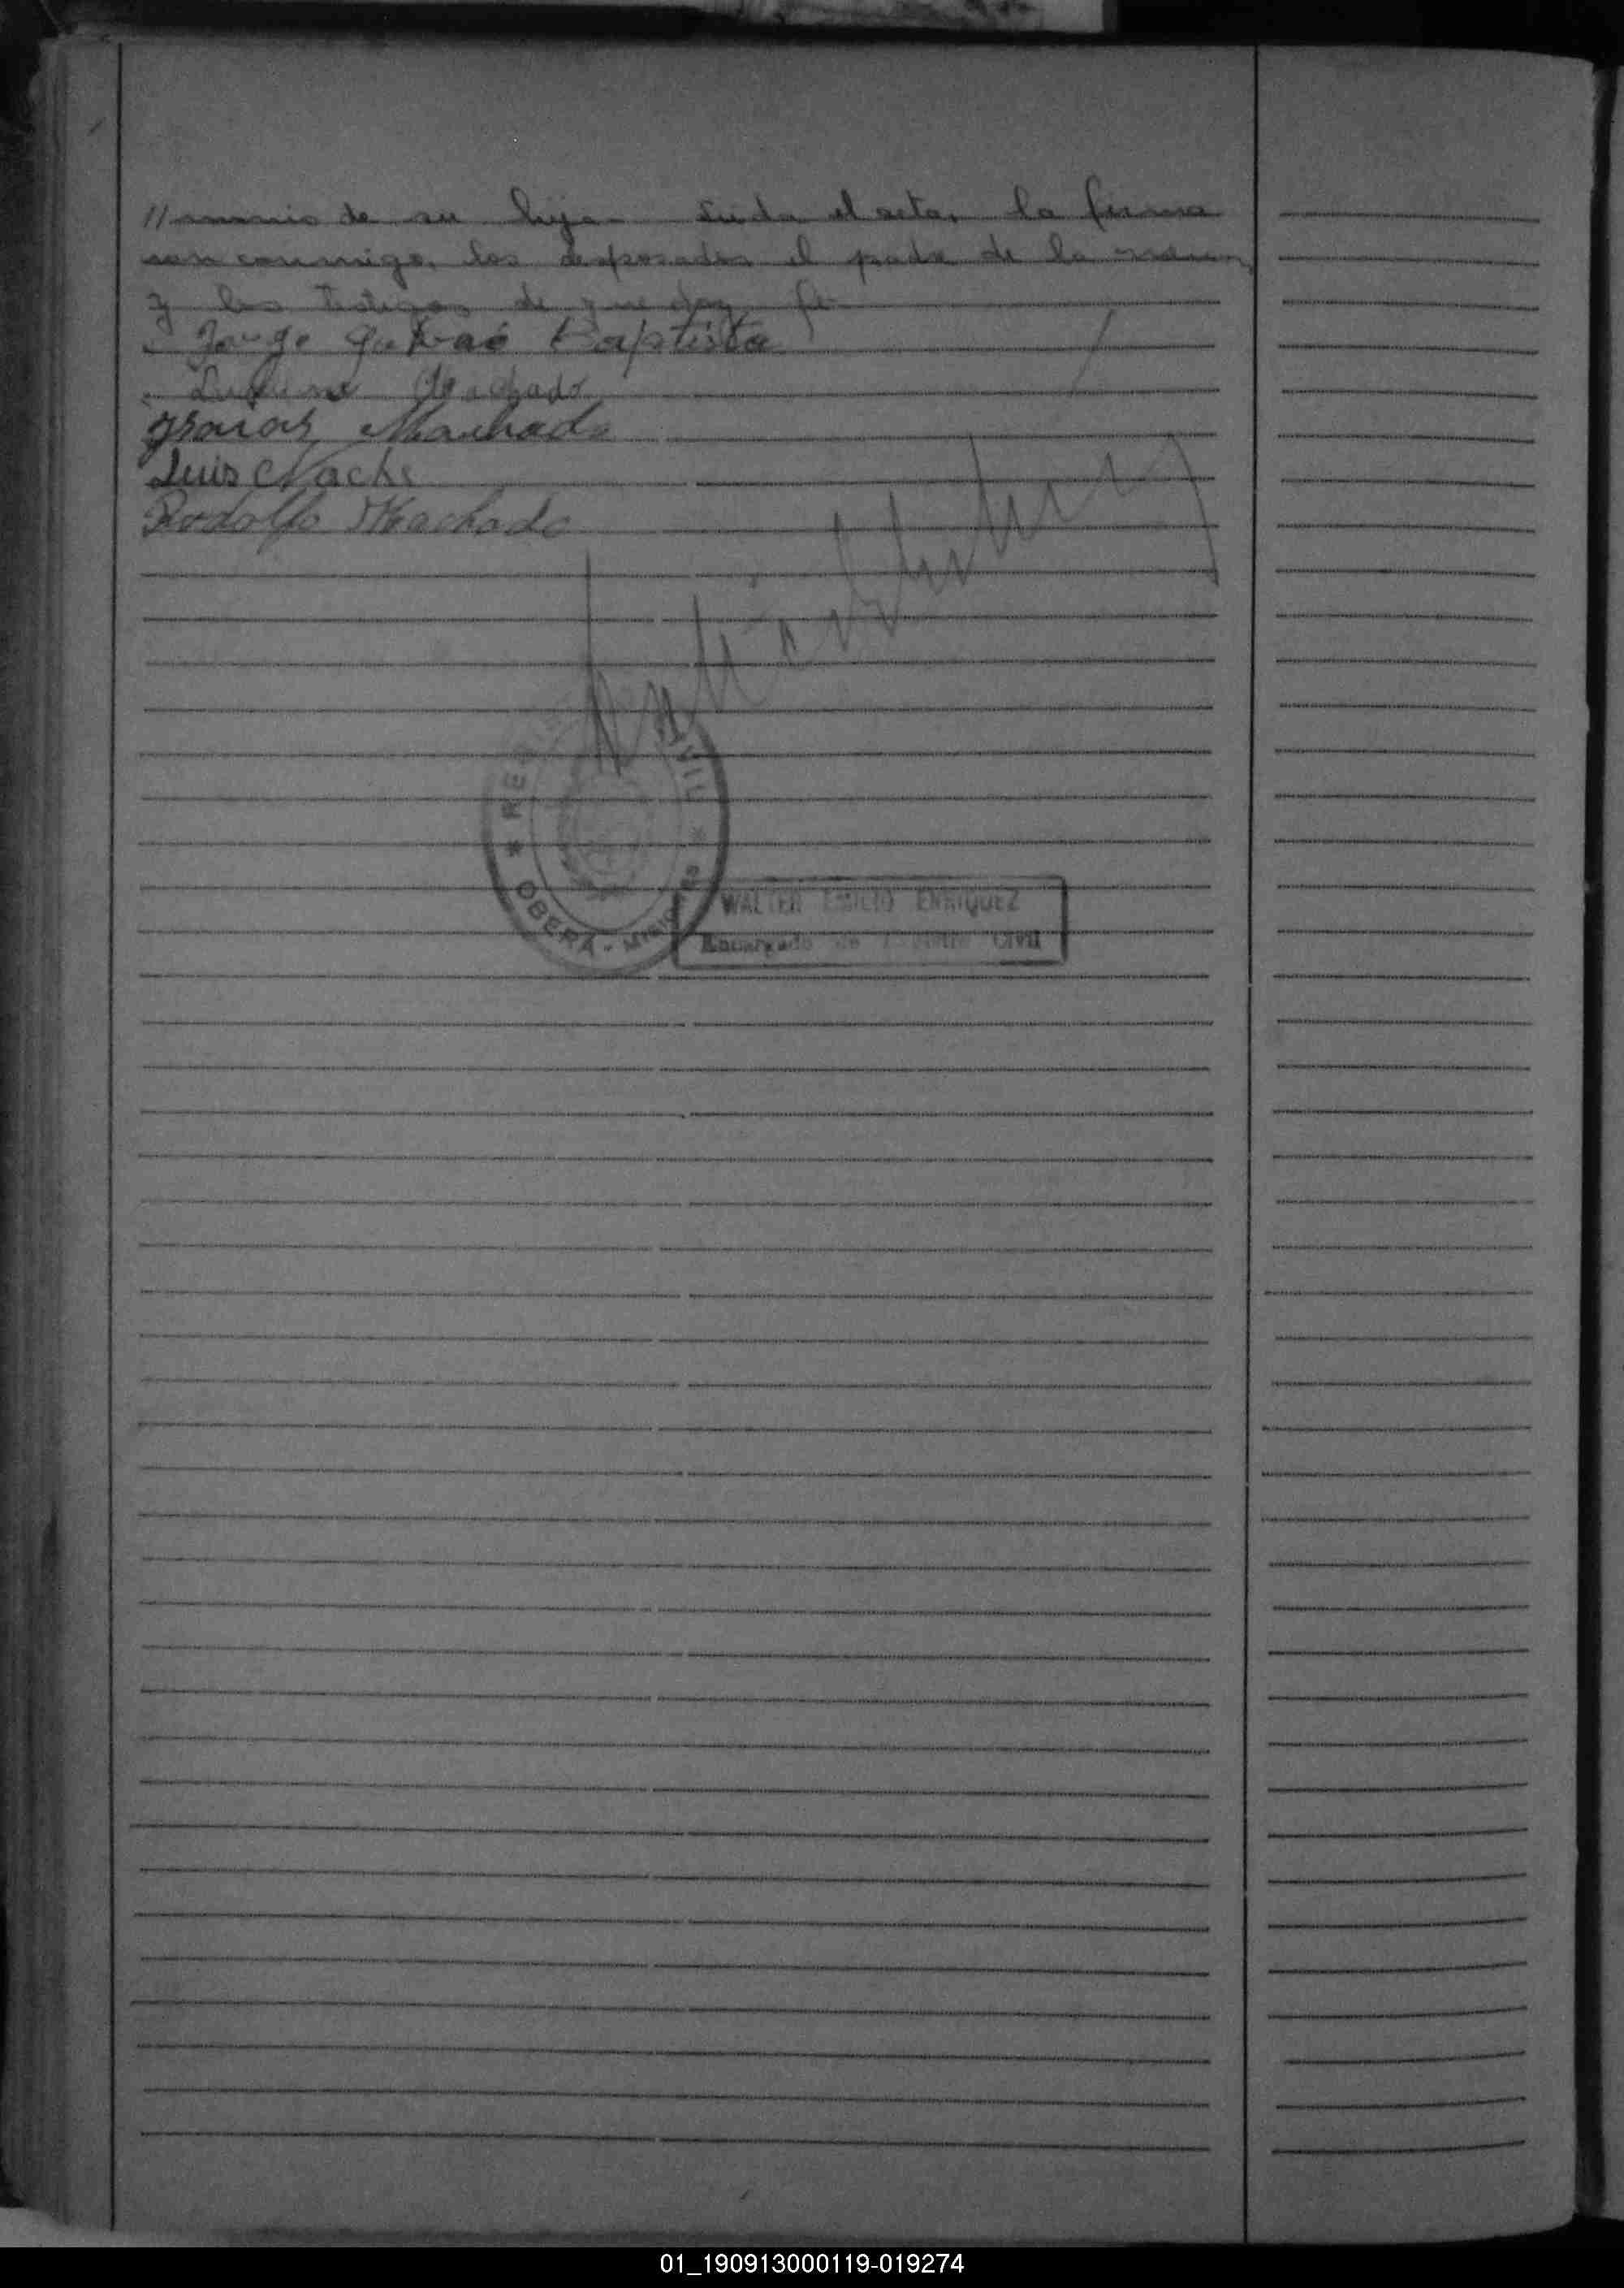 //monio de su hija. Leida el acta, la firma
ron conmigo, los desposados el padre de la menor
y los testigos de que doy fe
Jorge Galvao Baptista
Machado
Machado
Luis
Rodolfo Machado
REGISTRO CIVIL
* OBERA - Misiones *
WALTER EMILIO ENRIQUEZ
Encargado de Registro Civil
01_190913000119-019274